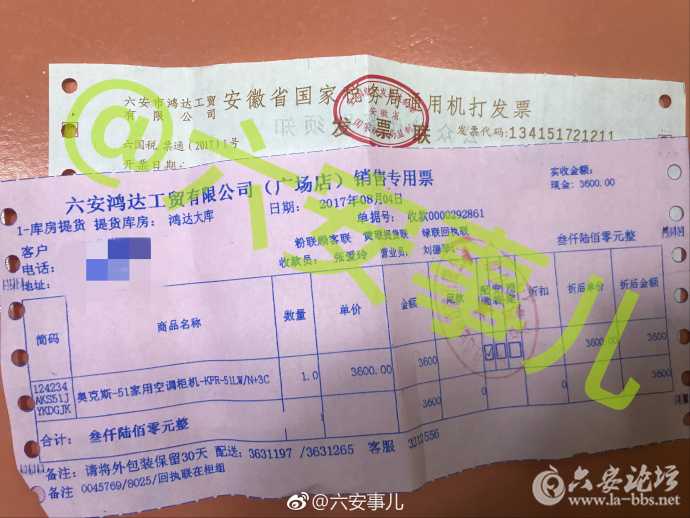 六安市鸿达工贸有限公司
安徽省国家税务局通用机打发票
发票联
发票代码:134151721211
六国税 票通(2017)1号
开票日期:
@六安事儿
六安鸿达工贸有限公司(广场店)销售专用票
实收金额:
现金: 3600.00
1-库房提货 提货库房: 鸿达大库
日期: 2017年08月04日
单据号: 收款0000292861
客户
粉联顾客联 黄联提货联 绿联回执联
电话:
收款员: 张爱玲 营业员:
叁仟陆佰零元整
地址:
简码 商品名称 数量 单价 金额 折扣 折后单价 折后金额
124234
AKS51J
YKDGJK
奥克斯-51家用空调柜机-KPR-51LW/N+3C 1.0 3600.00 3600 3600 3600
3600 0 3600
合计: 叁仟陆佰零元整
备注: 请将外包装保留30天 配送: 3631197 /3631265 客服
备注 0045769/8025/回执联在柜组
@六安事儿
六安论坛
www.la-bbs.net